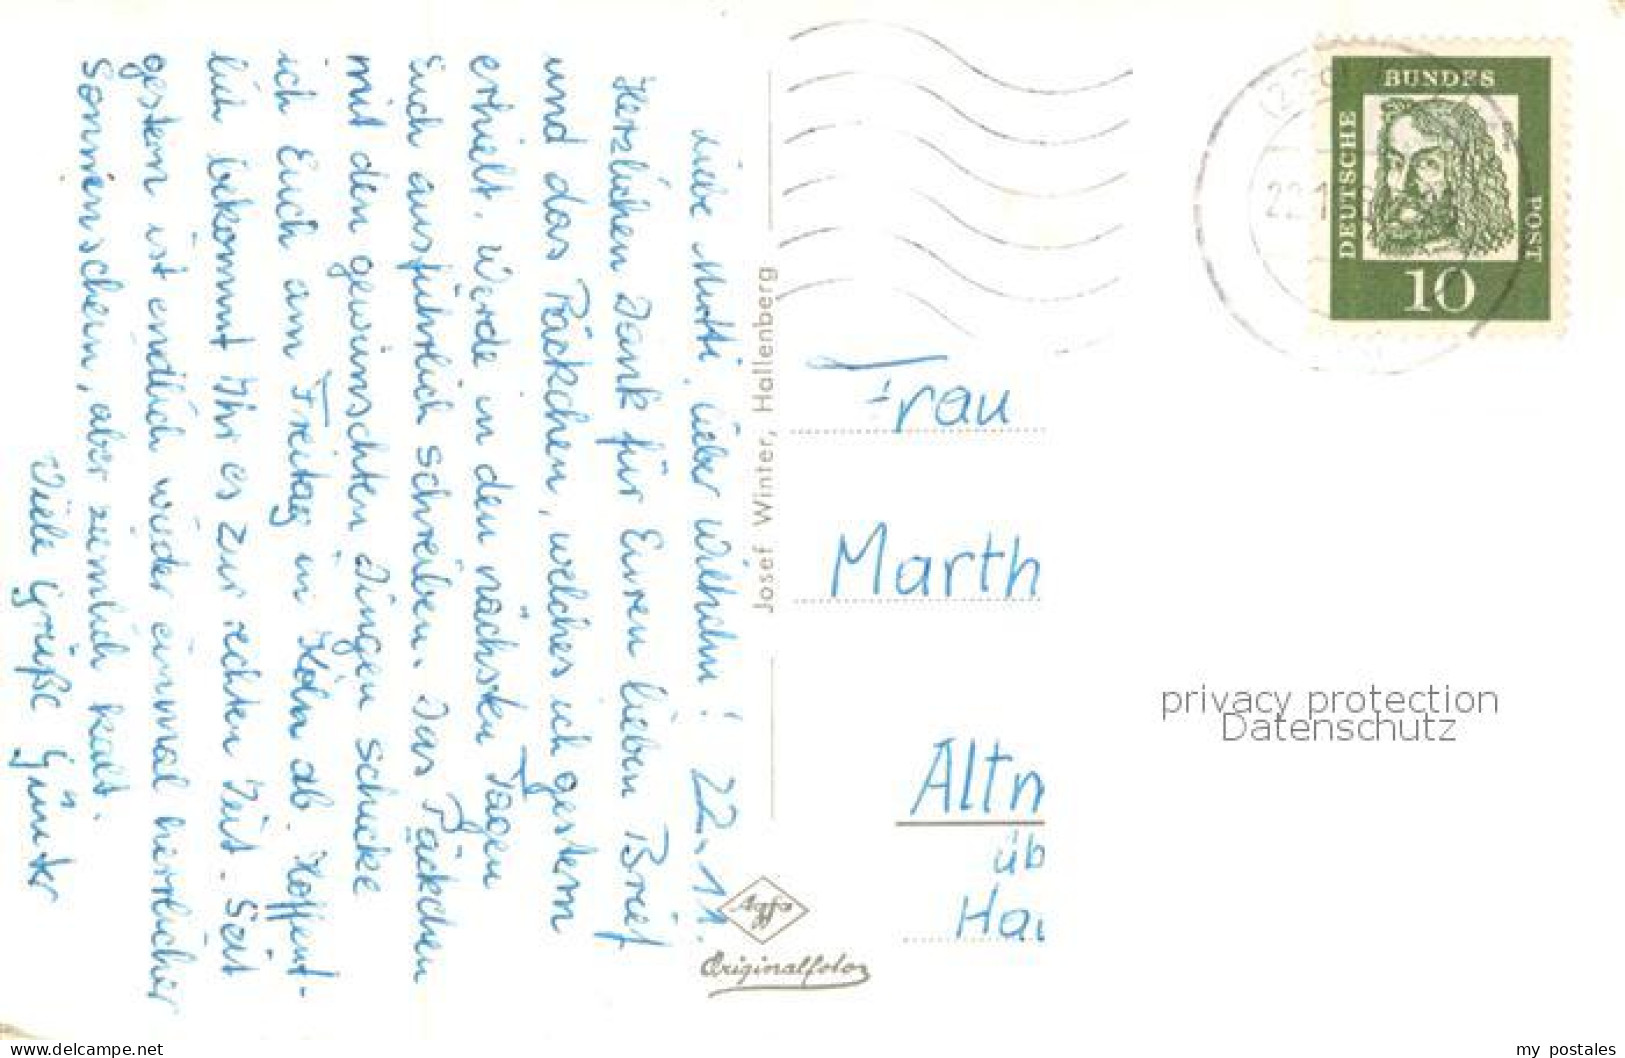 Liebe Mutti, lieber Wilhelm! 22.11.
Herzlichen Dank für Euren lieben Brief
und das Päckchen, welches ich gestern
erhielt. Werde in den nächsten Tagen
Euch ausführlich schreiben. Das Päckchen
mit den gewünschten Dingen schicke
ich Euch am Freitag in Köln ab. Hoffent-
lich bekommt Ihr es zur rechten Zeit. Seit
gestern ist endlich wieder einmal herrlicher
Sonnenschein, aber ziemlich kalt.
Viele Grüße Günter
Josef Winter, Hallenberg
Agfa
Originalfoto
DEUTSCHE
BUNDES
POST
10
Frau
Marth
Altn
üb
Ha
privacy protection
Datenschutz
delcampe.net
my_postales